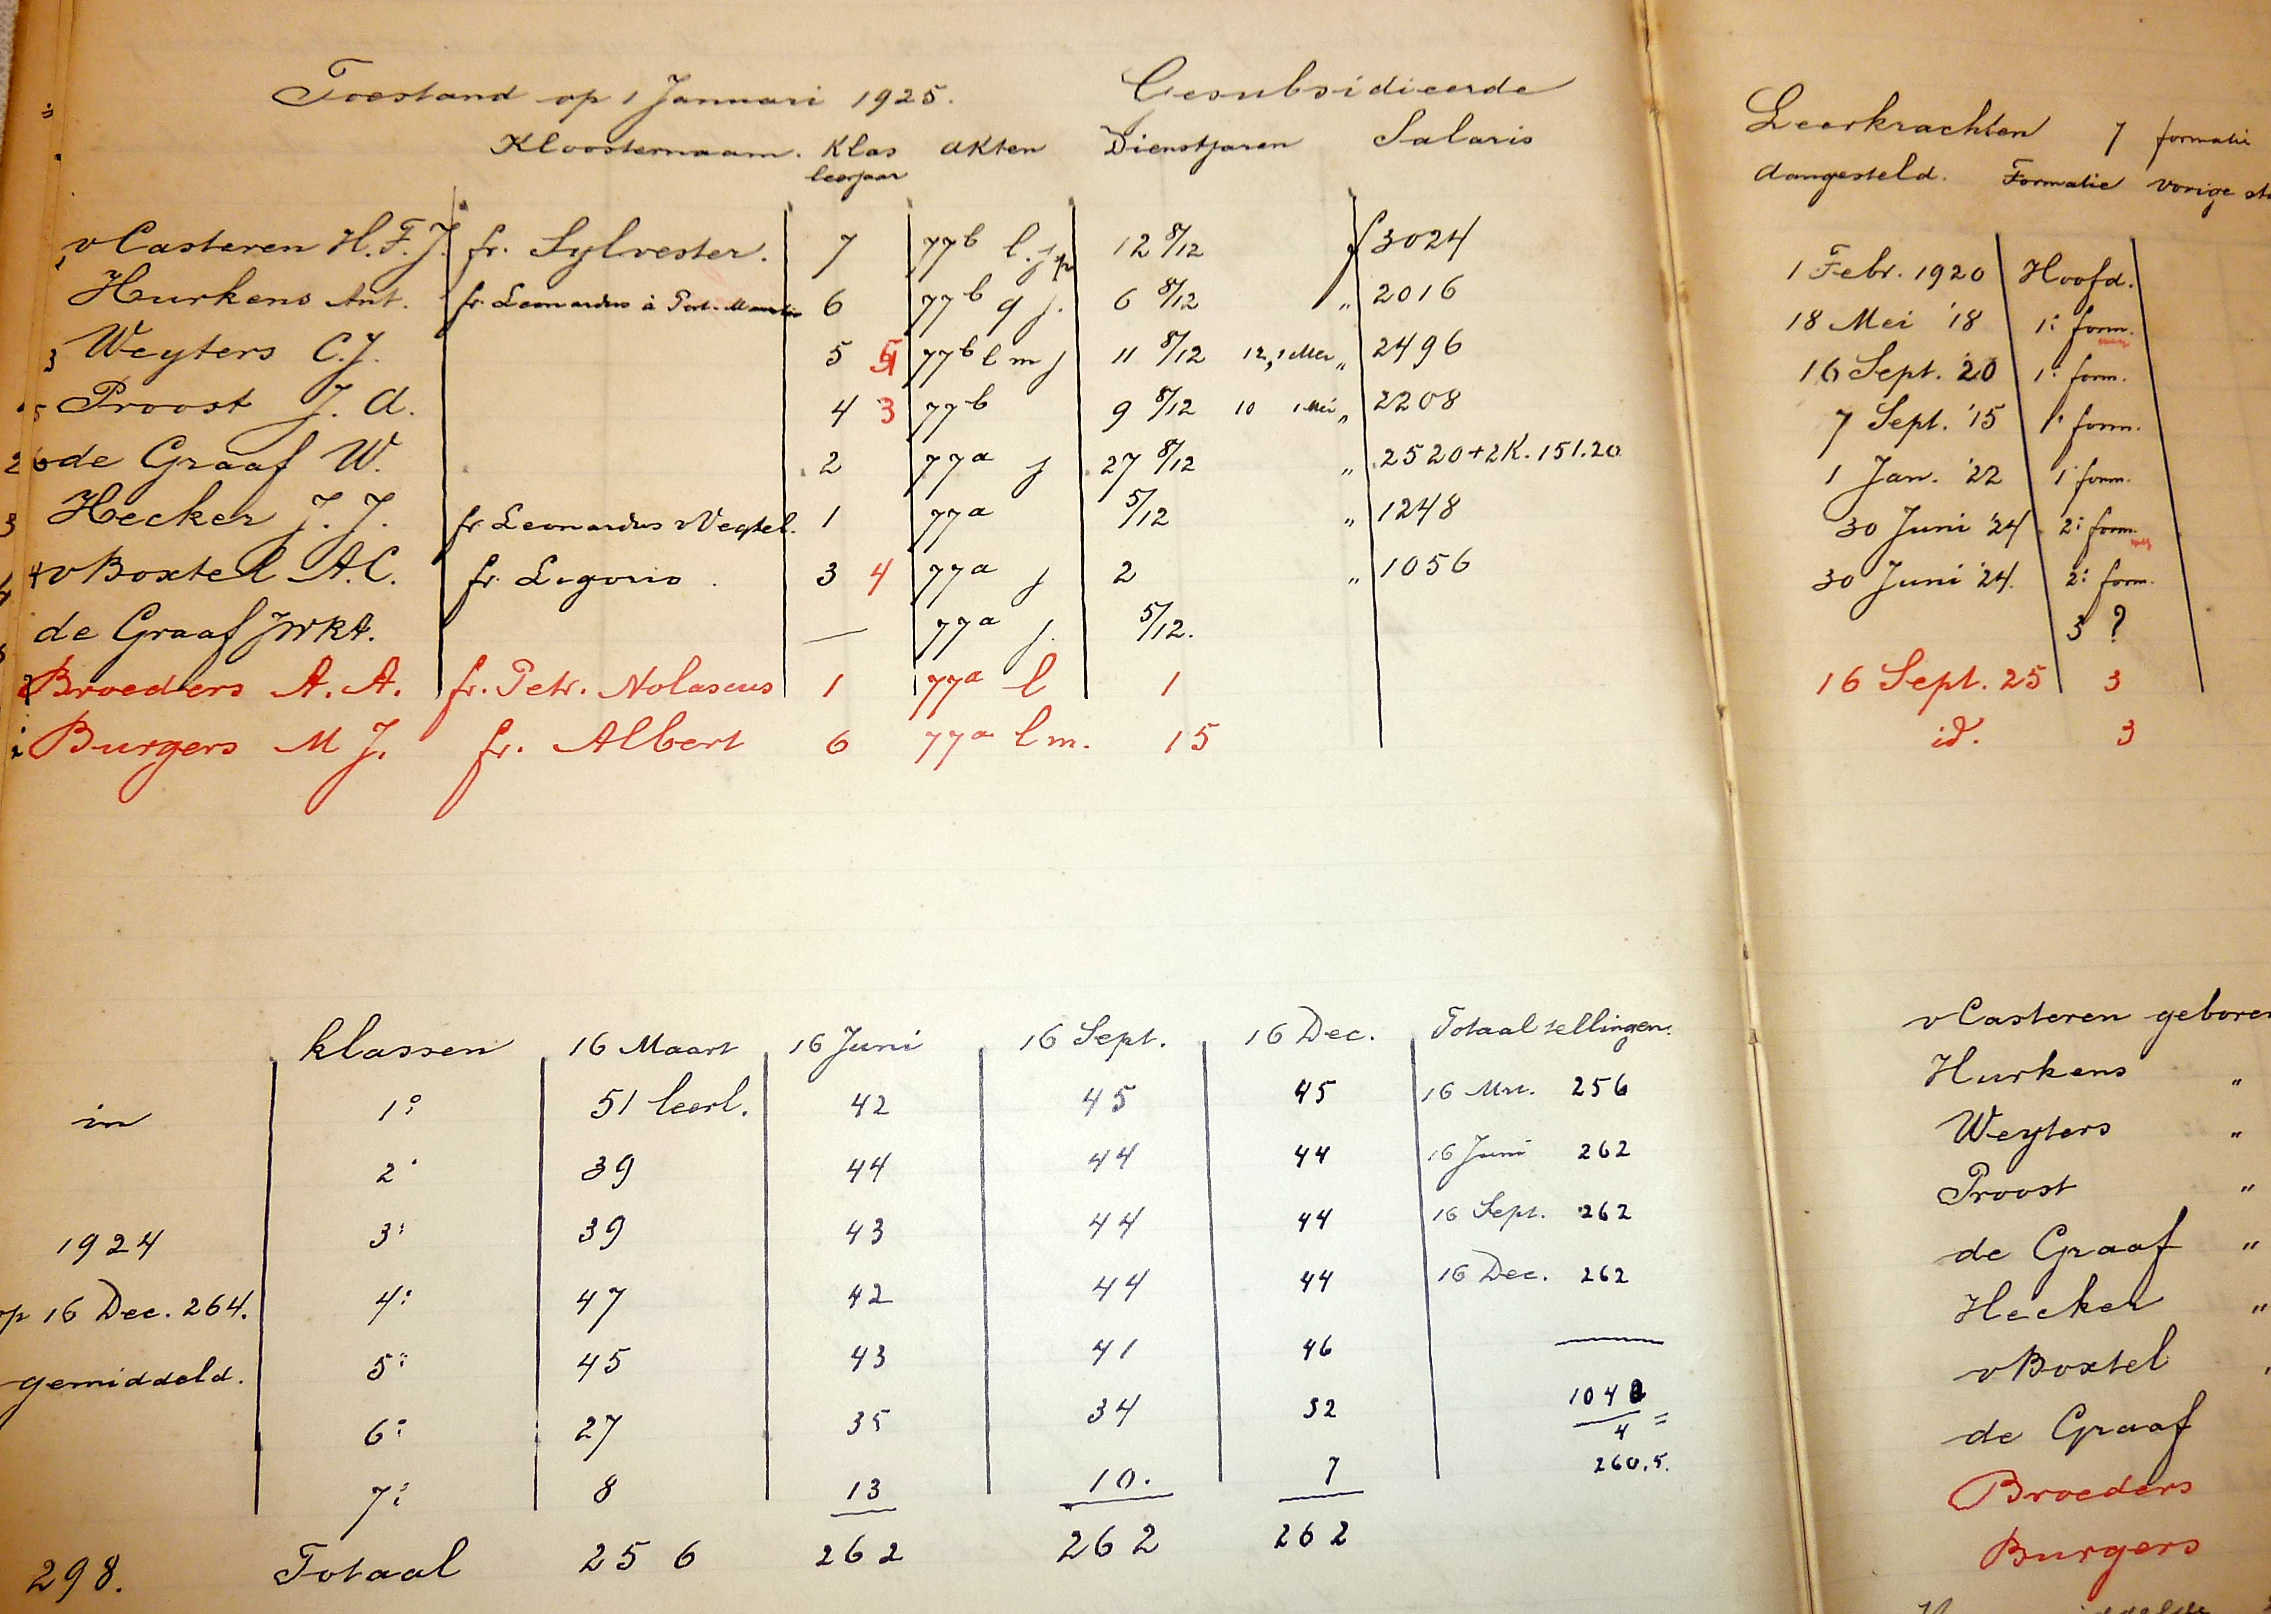 Toestand op 1 Januari 1925. Gesubsidieerde Leerkrachten 7 formatie
Kloosternaam. Klas leerjaar akten Dienstjaren Salaris aangesteld. Formatie vorige
v Casteren H.F.J. fr. Sylvester. 7 77b l. j 12 8/12 f 3024 1 Febr. 1920 Hoofd.
Hurkens Ant. fr. Leonardus à Port. Mauritio 6 77b q j. 6 8/12 " 2016 18 Mei '18 1e form.
3 Weyters C.J. 5 5 77b l m j 11 8/12 12, 1 Mei " 2496 16 Sept. '20 1e form.
5 Proost J. A. 4 3 77b 9 8/12 10 1 Mei " 2208 7 Sept. '15 1e form.
2 6 de Graaf W. 2 77a j 27 8/12 " 2520+2K. 151.20 1 Jan. '22 1e form.
3 Hecker J. J. fr. Leonardus v Veghel. 1 77a 5/12 " 1248 30 Juni '24 2e form.
4 v Boxtel A.C. fr. Ligorio. 3 4 77a j 2 " 1056 30 Juni '24. 2e form.
de Graaf JWKA. — 77a j. 5/12. 3 ?
Broeders A. A. fr. Petr. Nolascus 1 77a l 1 16 Sept. 25 3
Burgers M J. fr. Albert 6 77a l m. 15 id. 3
klassen 16 Maart 16 Juni 16 Sept. 16 Dec. Totaal tellingen.
in 1e 51 leerl. 42 45 45 16 Mrt. 256
2e 39 44 44 44 16 Juni 262
1924 3e 39 43 44 44 16 Sept. 262
op 16 Dec. 264. 4e 47 42 44 44 16 Dec. 262
gemiddeld. 5e 45 43 41 46
6e 27 35 34 32 1042/4 =
7e 8 13 10. 7 260.5.
298. Totaal 256 262 262 262
v Casteren geboren
Hurkens "
Weyters "
Proost "
de Graaf "
Hecker "
v Boxtel
de Graaf
Broeders
Burgers